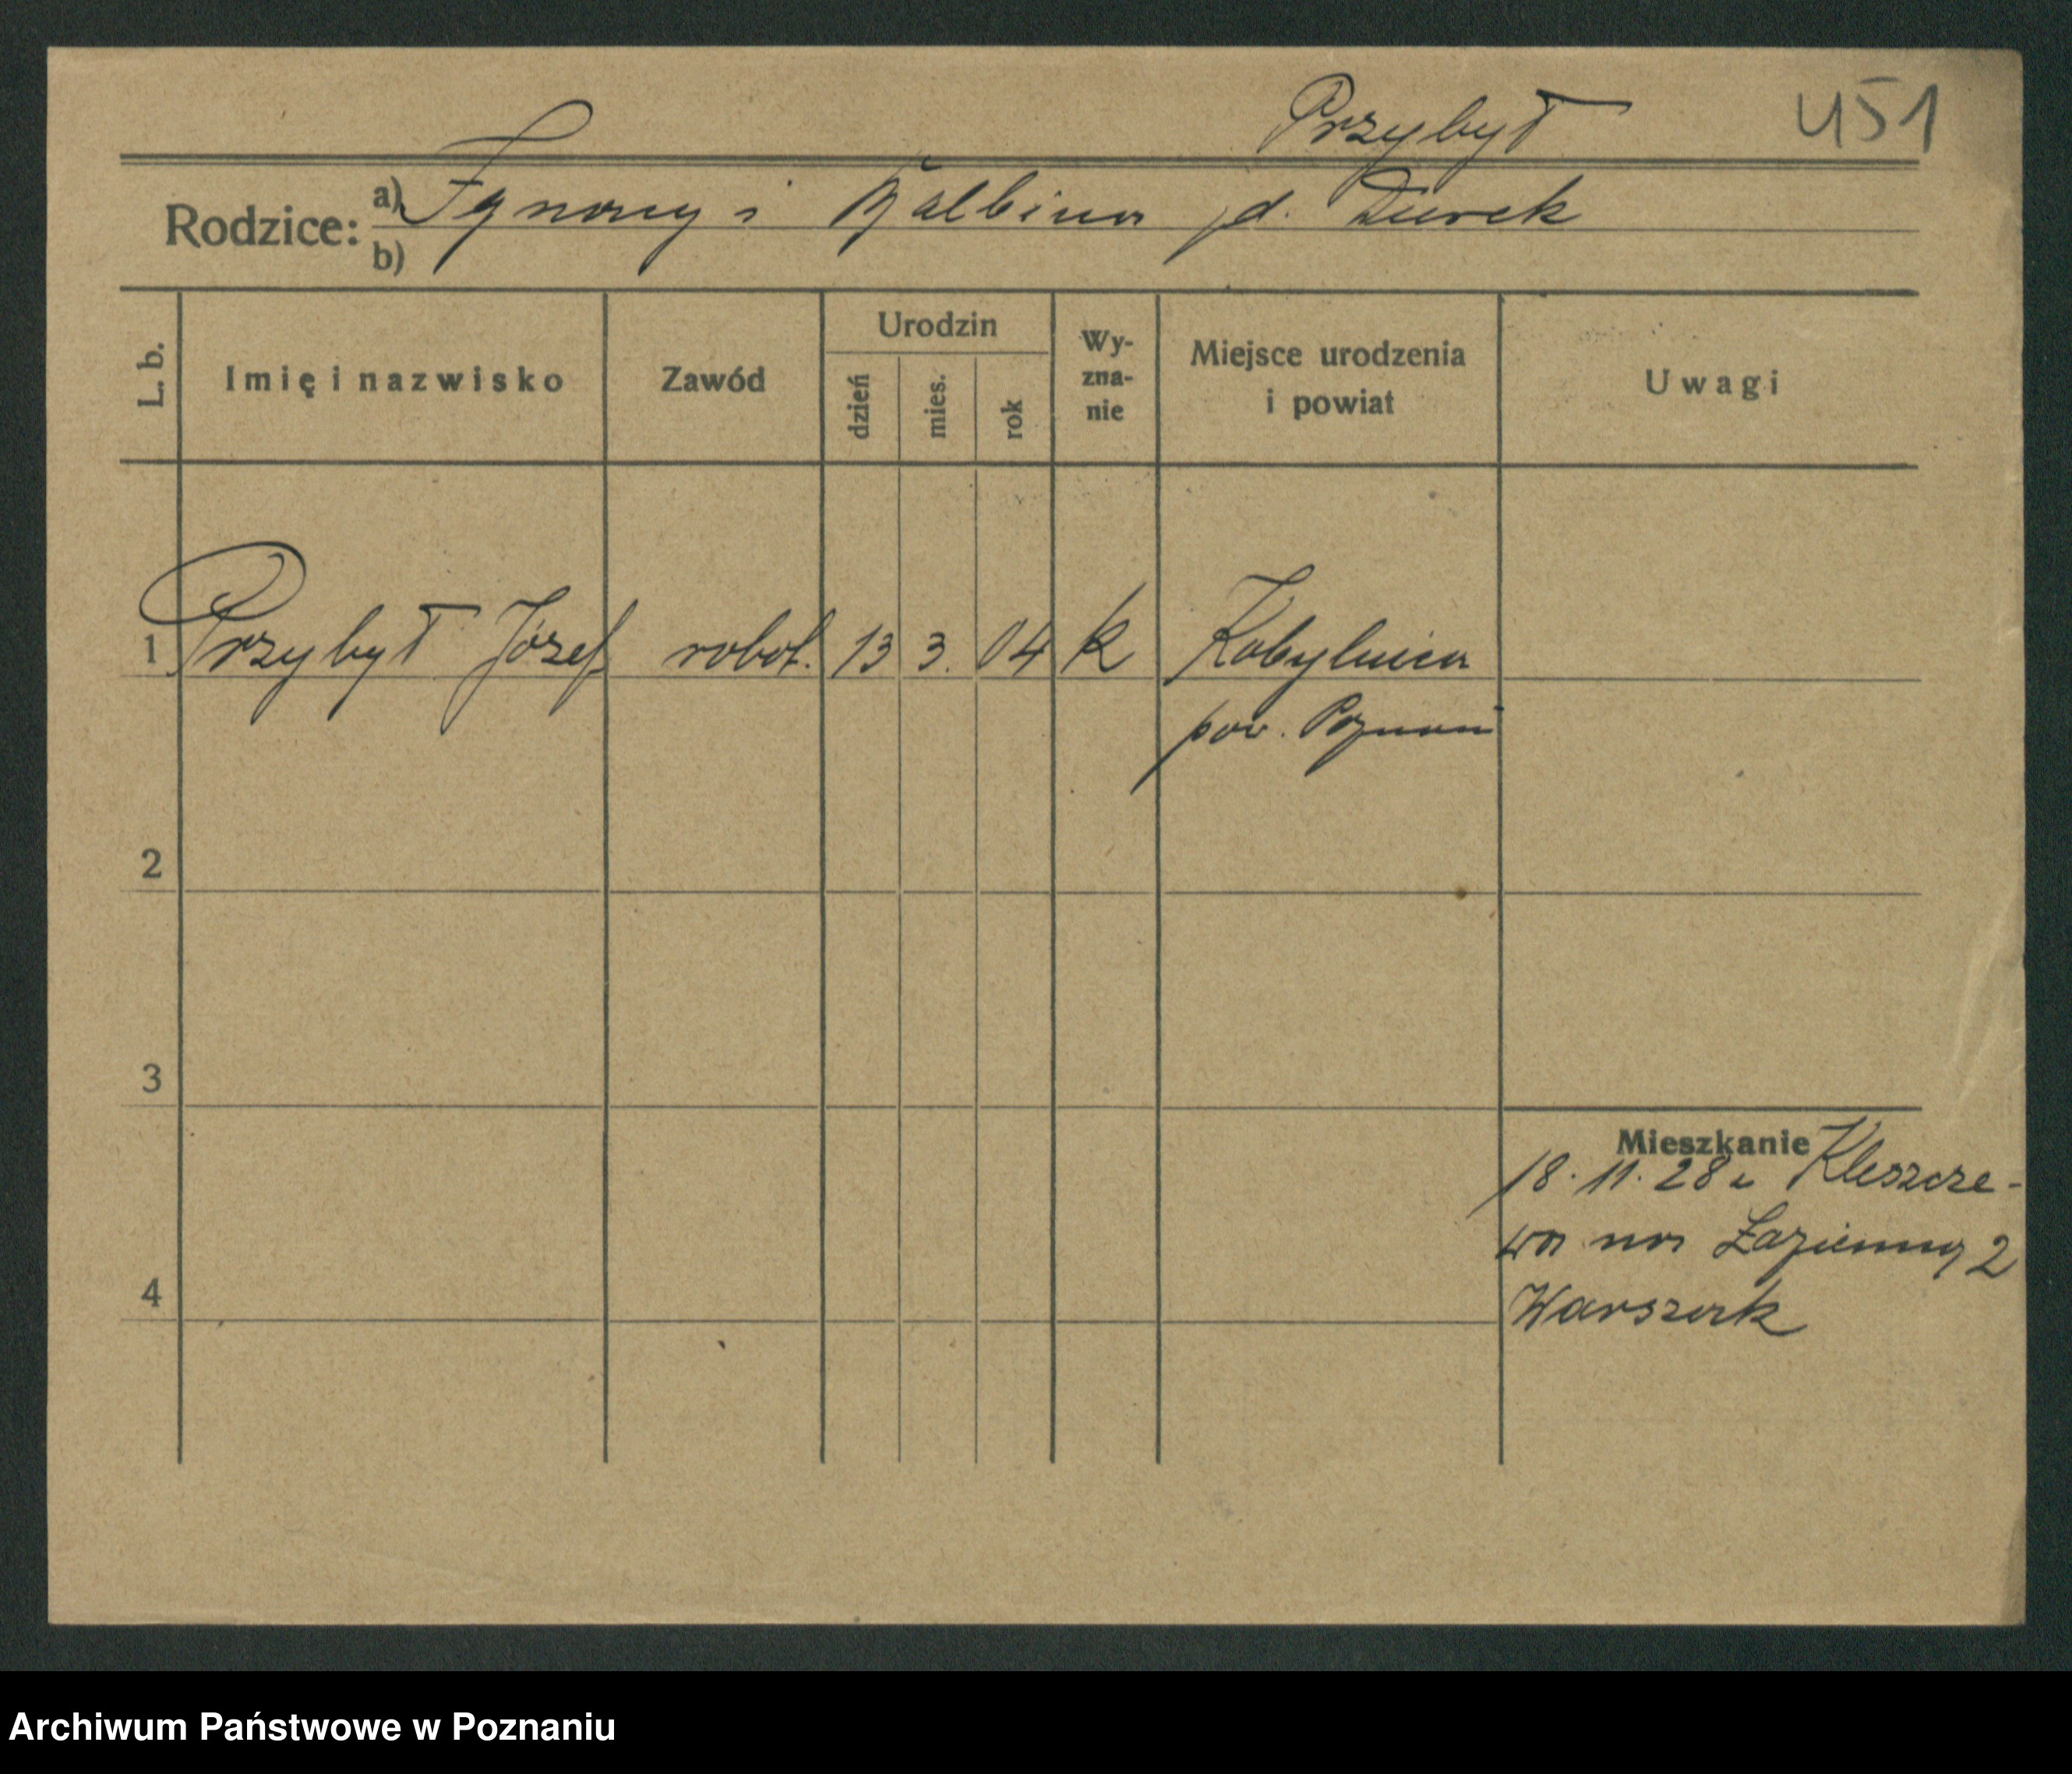 Przybył 451
Rodzice: a) Ignacy i Balbina /d. Durek
b)
L. b. Imię i nazwisko Zawód Urodzin dzień mies. rok Wy-
zna-
nie Miejsce urodzenia
i powiat Uwagi
1 Przybył Józef robot. 13 3. 04 k Kobylnica
pow. Poznań
2
3
Mieszkanie
18.11.28 z Kleszcze-
wa na Łazienną 2
4
Warszak
Archiwum Państwowe w Poznaniu